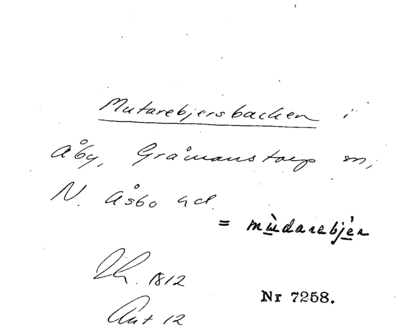 Mutarebjersbacken i
Åby, Gråmanstorp sn,
N. Åsbo hd.
= mùdarebjèr
Th. 1812
Ant 12
Nr 7258.